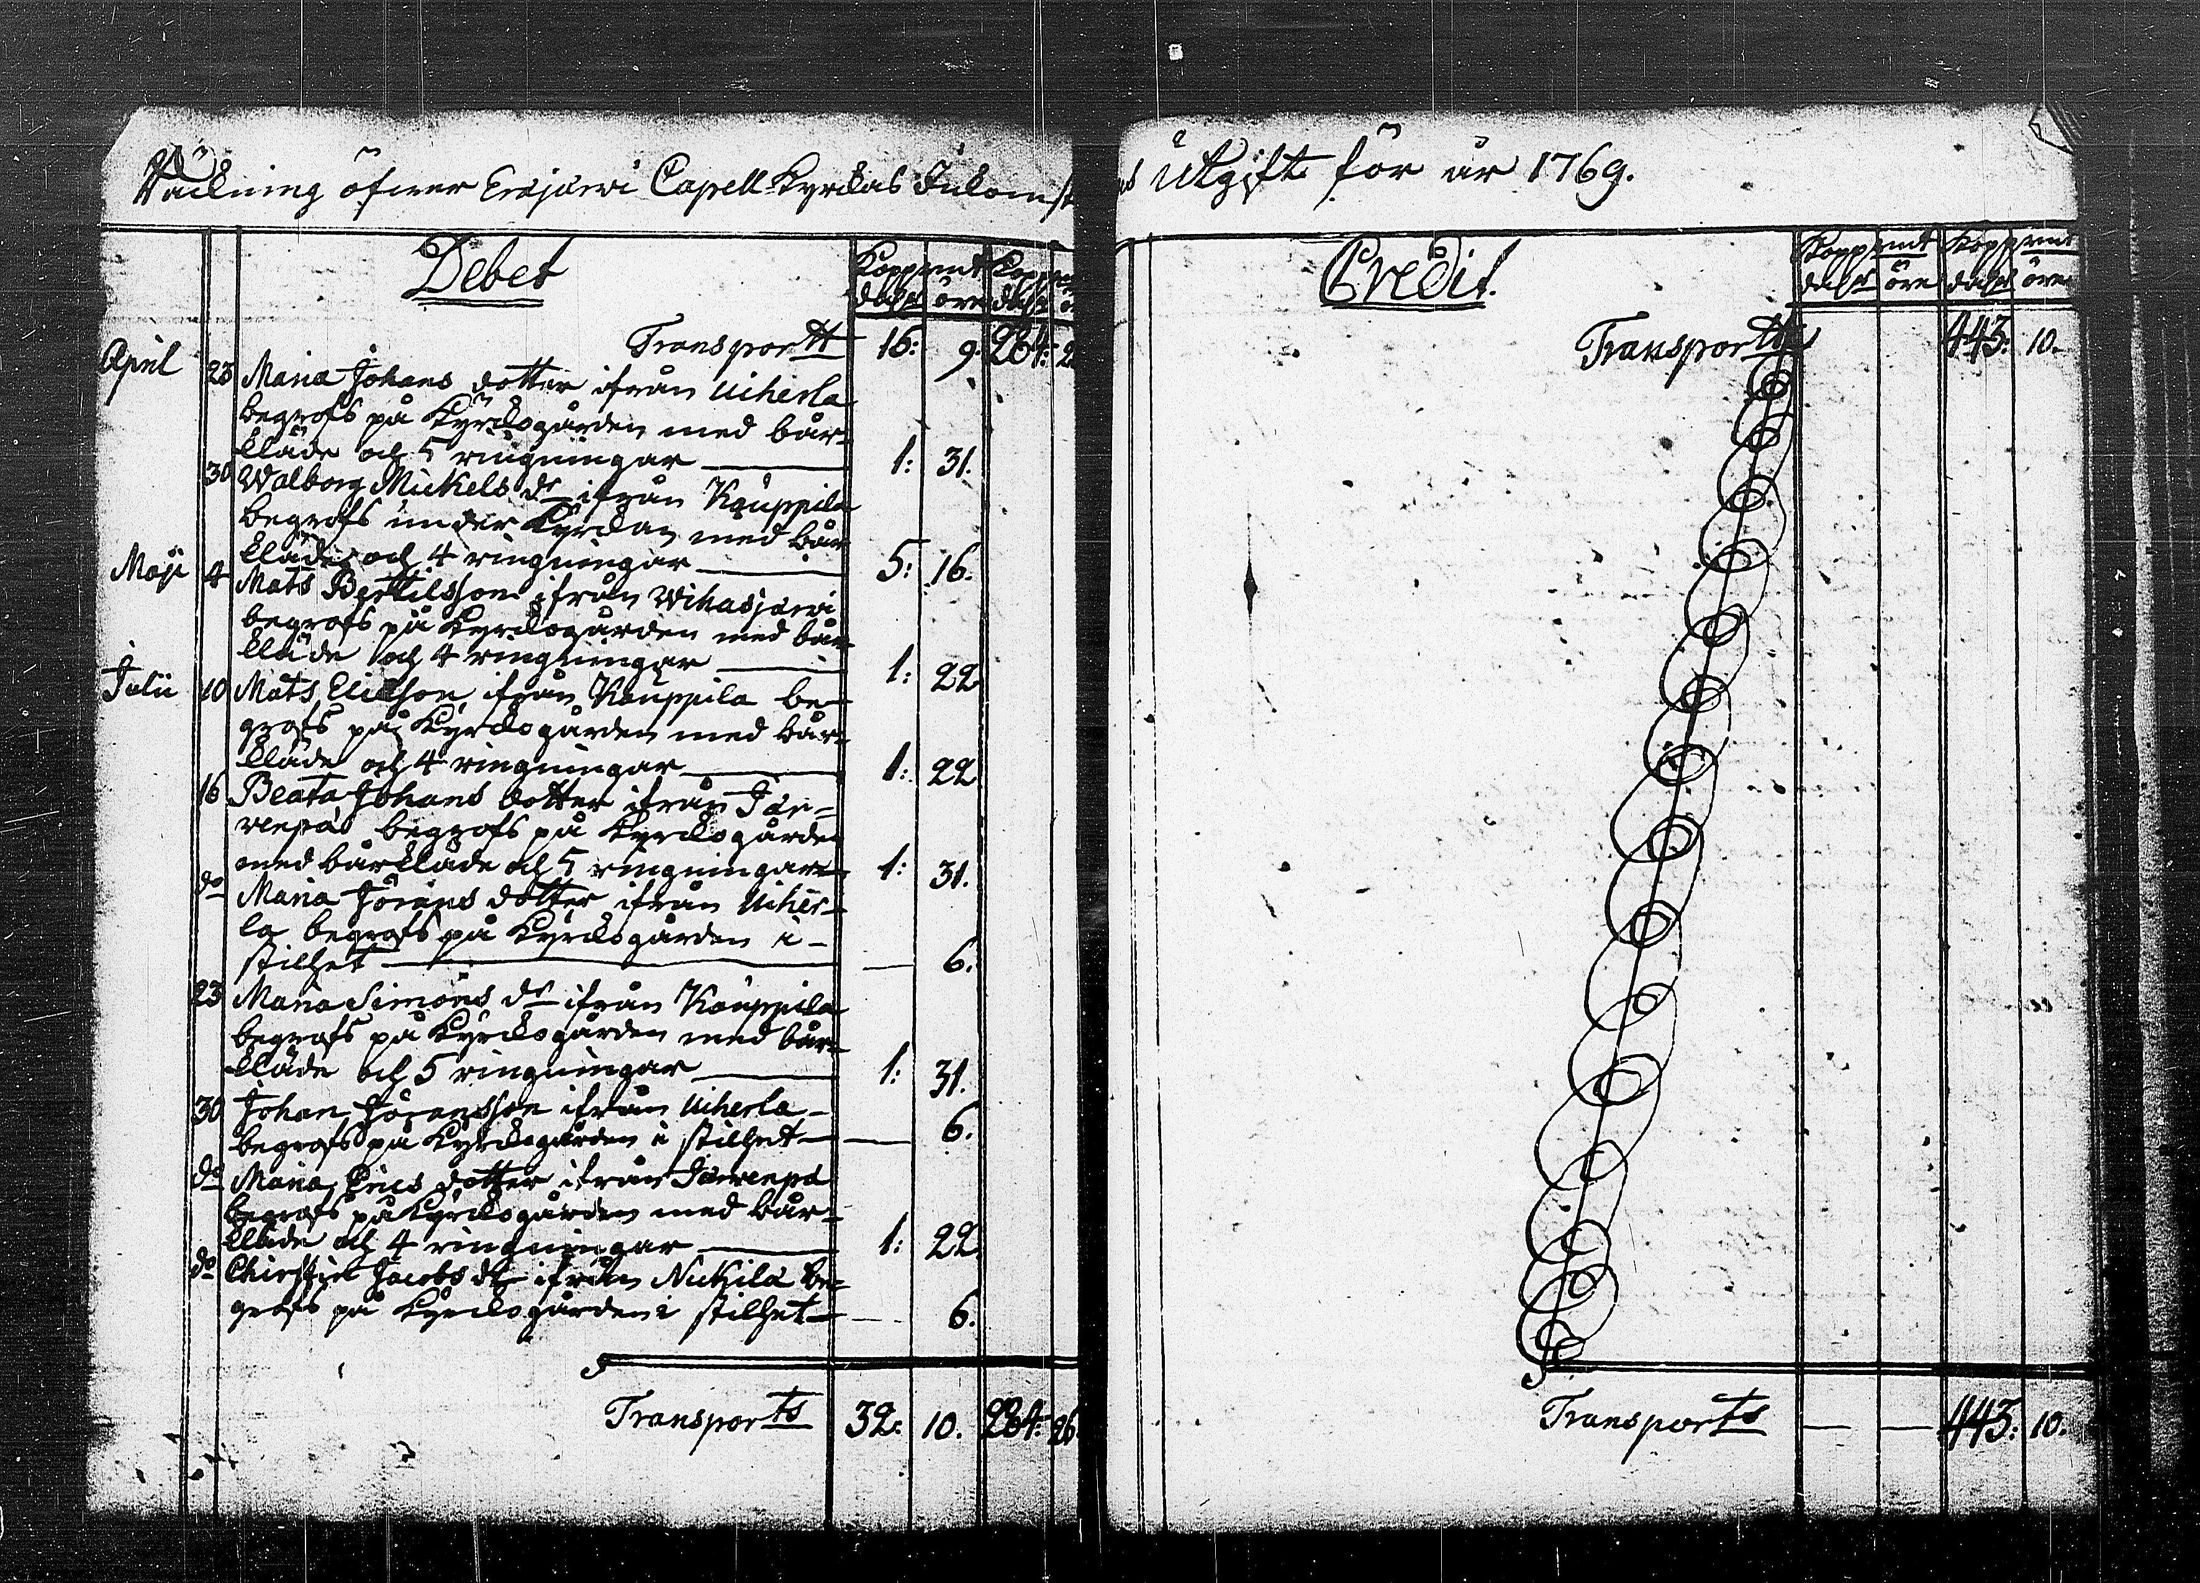 Räckning öfwer Eräjärwi Capell Kyrckas Inkomst
Utgift för år 1769.
Debet
Kopp rmt Kopp
dahlr öre dahlr
Transportt 16: 9. 264: 26
April 23 Maria Johans dotter ifrån Uiherla
begrofs på Kyrckogården med bår-
kläde och 5 ringningar 1: 31.
30 Walborg Mickels dr ifrån Kauppila
begrofs under Kyrckan med bår
kläde och 4 ringningar 5: 16.
Maji 4 Mats Bertilsson ifrån Wihasjärwi
begrofs på Kyrckogården med bår
kläde och 4 ringningar 1: 22
Julii 10 Mats Ericsson ifrån Kauppila be-
grofs på Kyrckogården med bår-
kläde och 4 ringningar 1: 22
16 Beata Johans dotter ifrån Jär-
wenpä begrofs på Kyrckogården
med bårkläde och 5 ringningar 1: 31.
do Maria Jörans dotter ifrån Uiher-
la begrofs på Kyrckogården i
stilhet — 6.
23 Maria Simons dr ifrån Kauppila
begrofs på Kyrckogården med bår-
kläde och 5 ringningar 1: 31.
30 Johan Jöransson ifrån Uiherla
begrofs på Kyrckogården i stilhet — 6.
do Maria Erics dotter ifrån Järwenpä
begrofs på Kyrckogården med bår-
kläde och 4 ringningar 1: 22
do Chirstin Jacobs dr ifrån Nickilä be-
grofs på Kyrckogården i stilhet — 6.
Transports 32: 10. 264: 26
Credit.
Kopp rmt Kopp rmt
dahlr öre dahlr öre
Transports 443: 10.
Transports — — 443: 10.